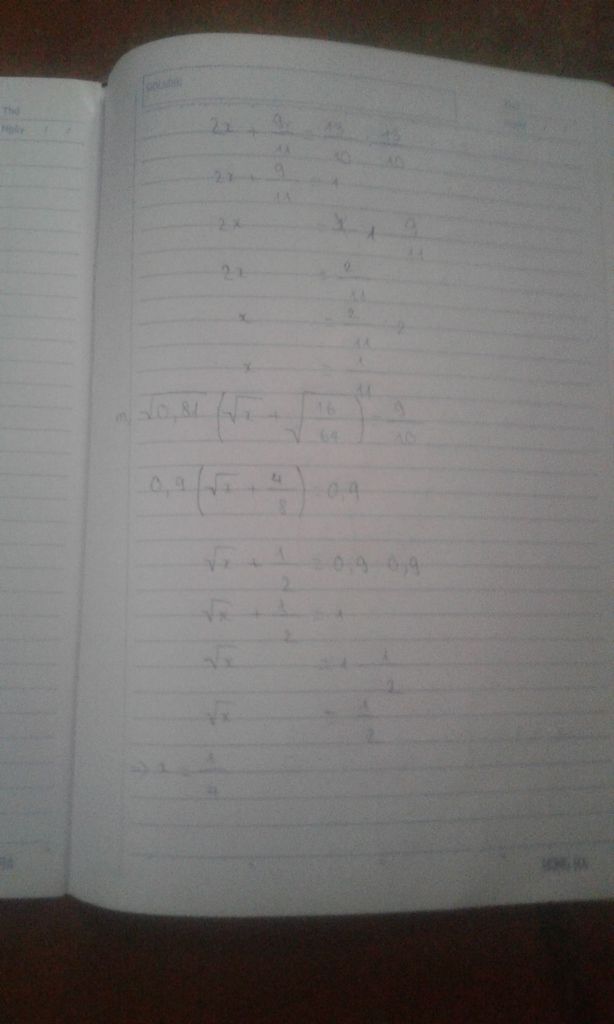 Thứ
Ngày / /
2x + 9/11 = 13/10 : 13/10
2x + 9/11 = 1
2x = 1 - 9/11
2x = 2/11
x = 2/11 : 2
x = 1/11
m, √0,81 (√x + √(16/64)) = 9/10
0,9 (√x + 4/8) = 0,9
√x + 1/2 = 0,9 : 0,9
√x + 1/2 = 1
√x = 1 - 1/2
√x = 1/2
=> x = 1/4
HONG HA